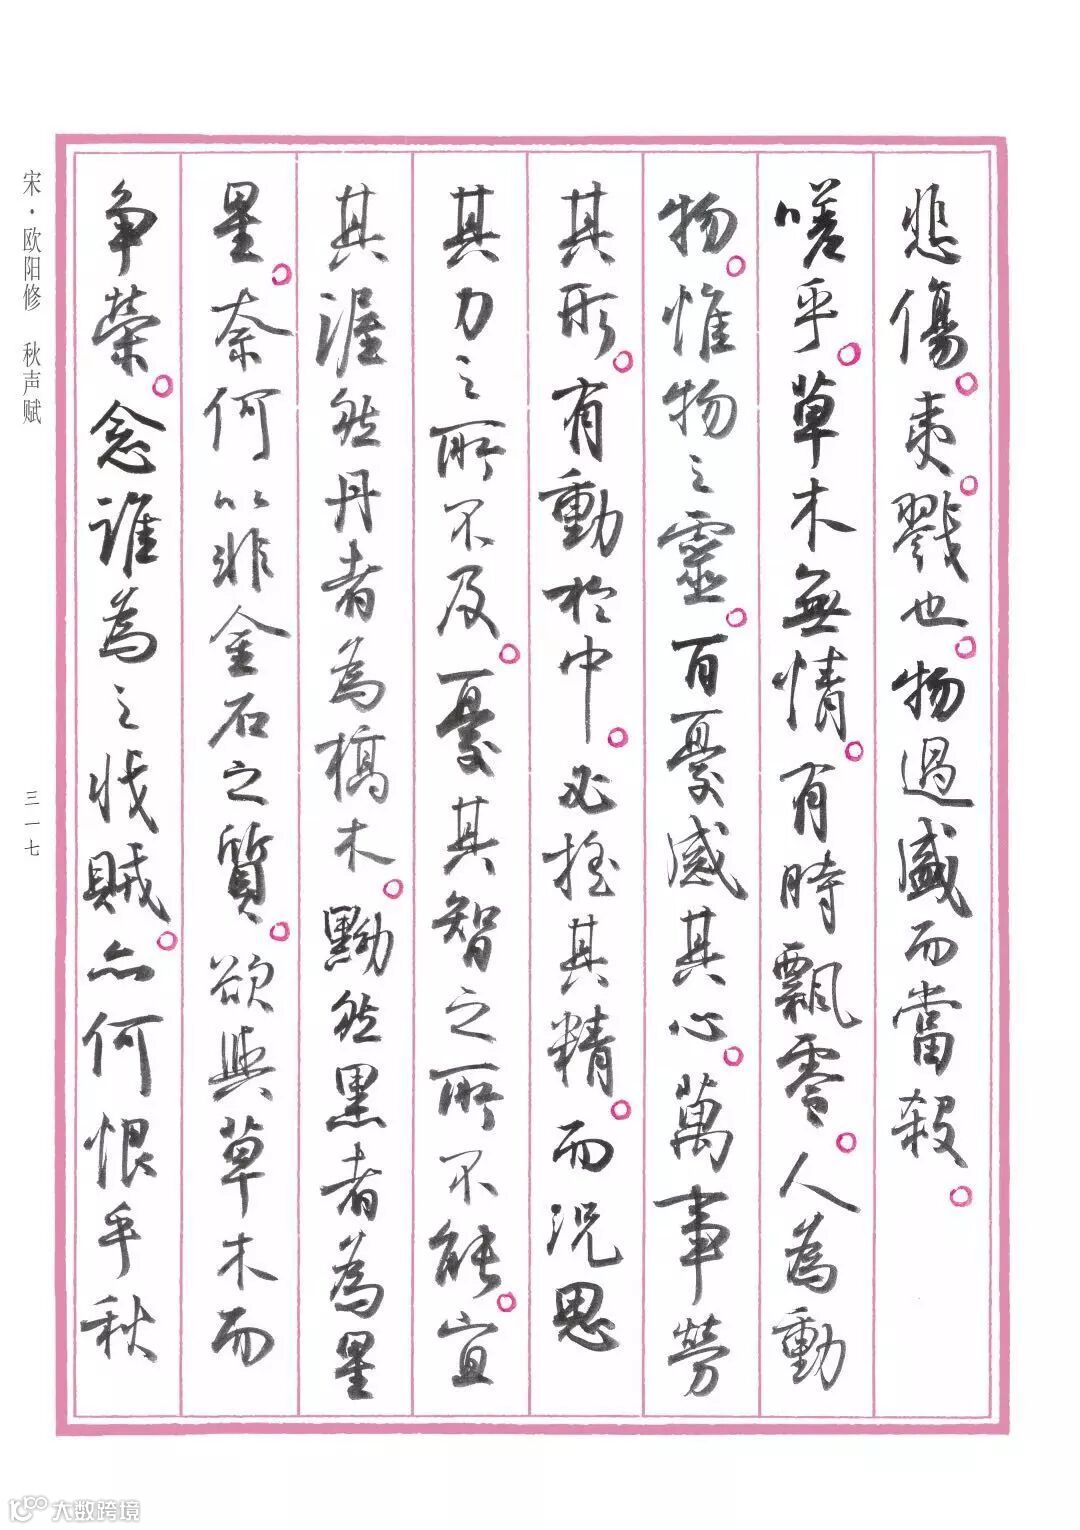 悲傷。夷。戮也。物過盛而當殺。
嗟乎。草木無情。有時飄零。人為動
物。惟物之靈。百憂感其心。萬事勞
其形。有動於中。必搖其精。而況思
其力之所不及。憂其智之所不能。宜
其渥然丹者為槁木。黝然黑者為星
星。奈何以非金石之質。欲與草木而
争榮。念誰為之戕賊。亦何恨乎秋
宋·欧阳修 秋声赋
三一七
大数跨境